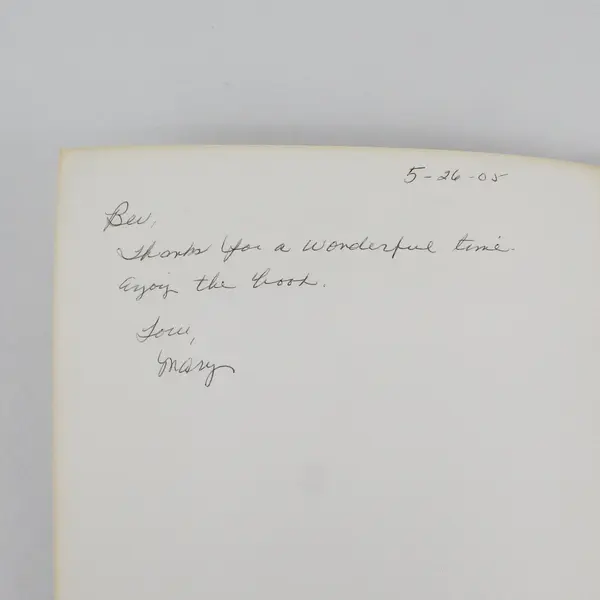 5-26-05
Bev,
Thanks for a wonderful time.
Enjoy the book.
Love,
Mary